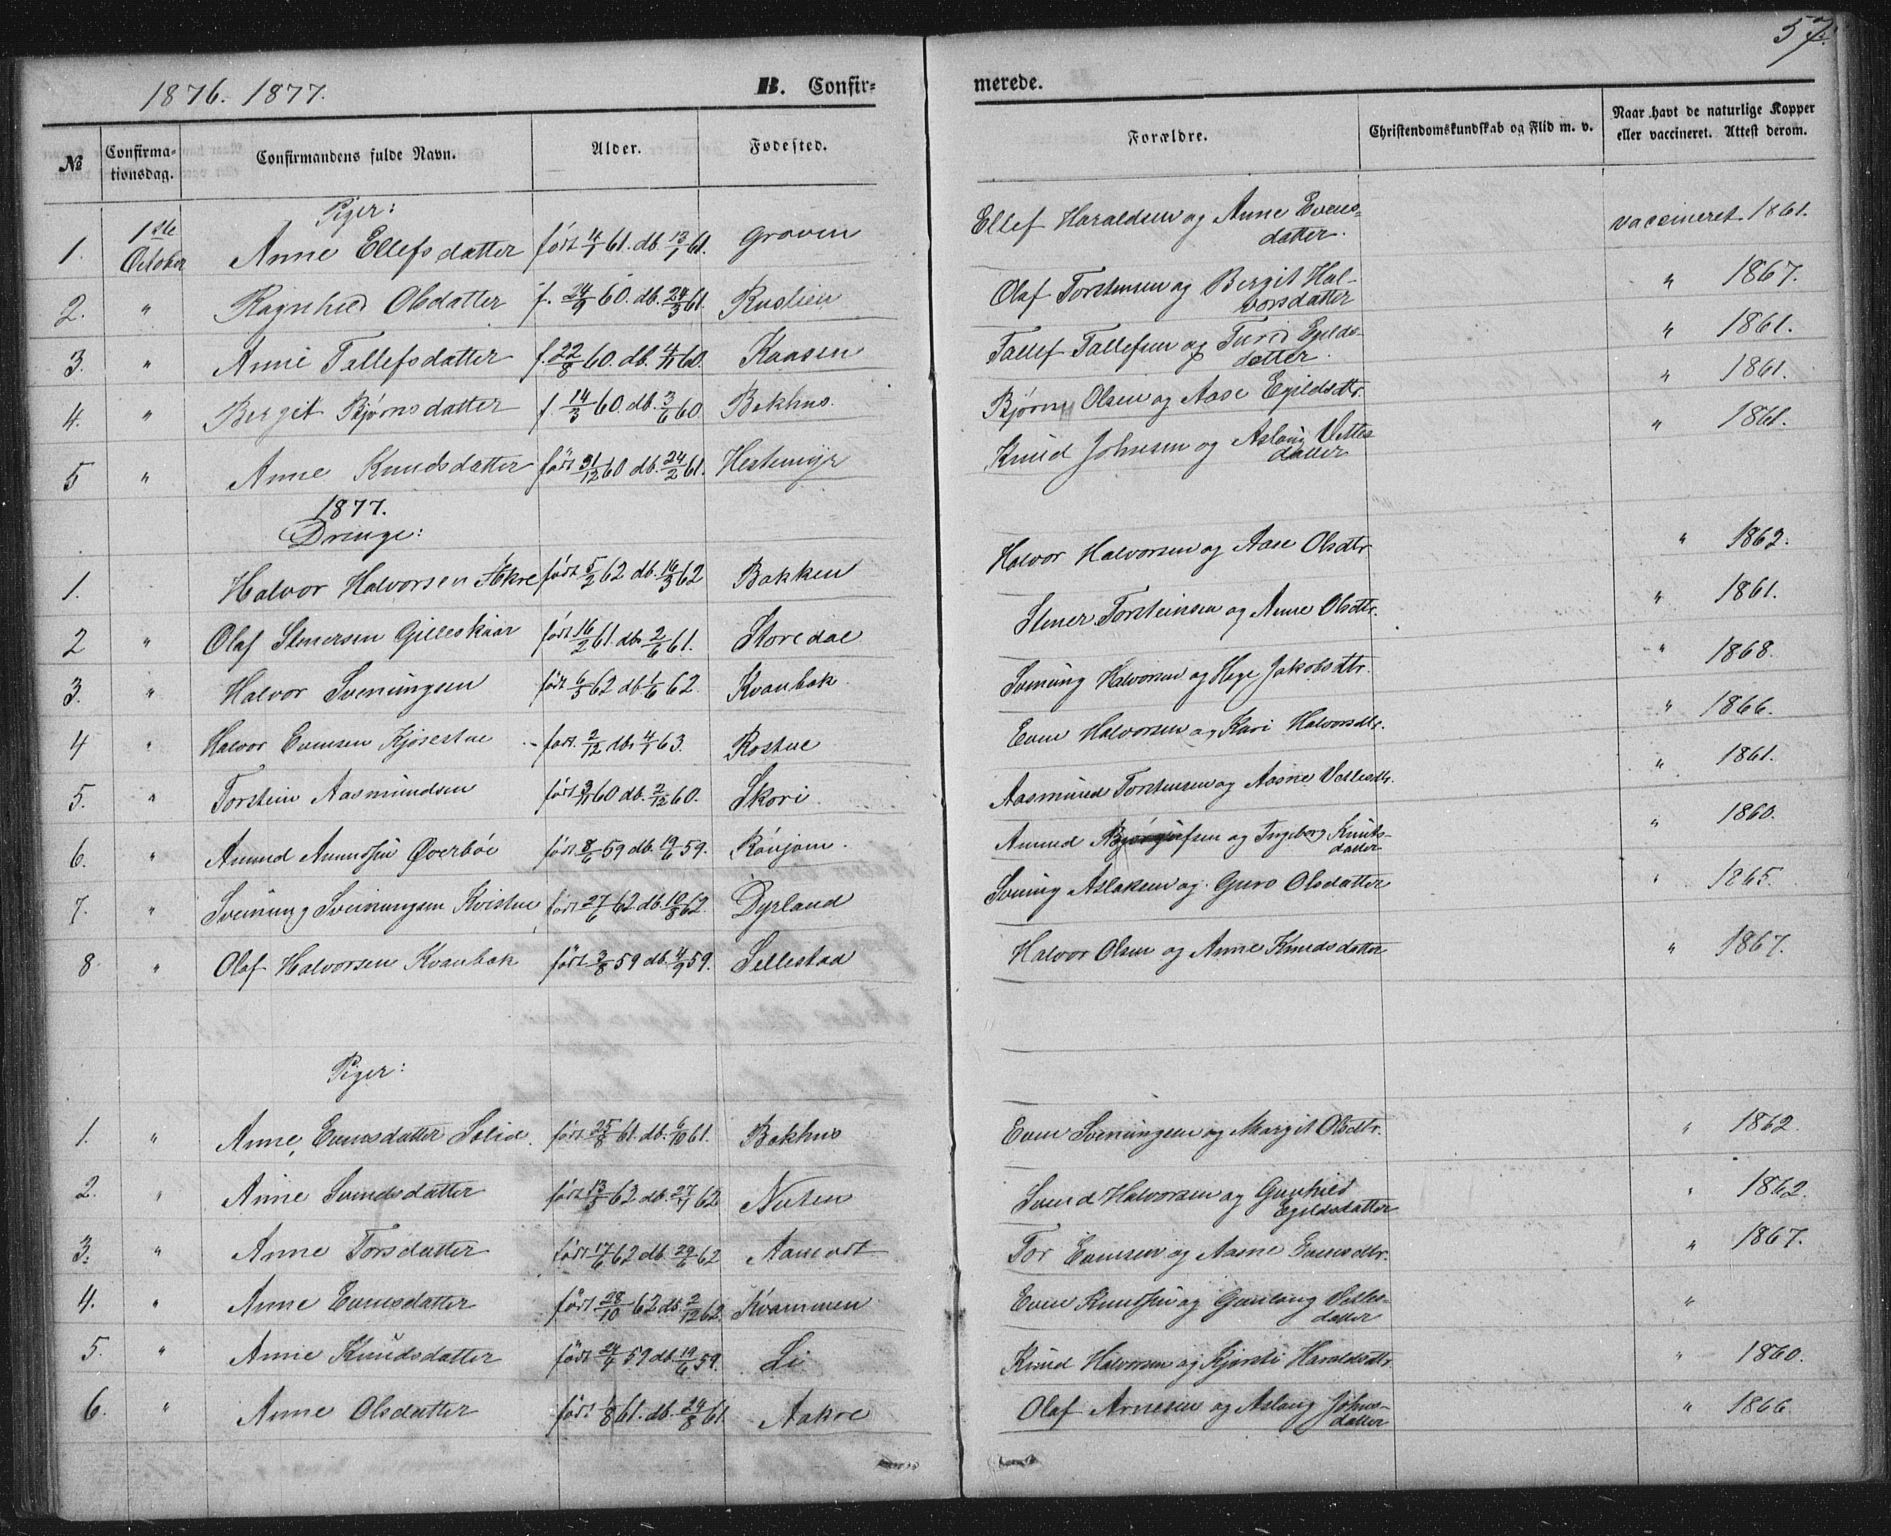 57.
1876. 1877.
B. Confirmerede.
№ Confirmationsdag. Confirmandens fulde Navn. Alder. Fødested. Forældre. Christendomskundskab og Flid m. v. Naar havt de naturlige Kopper eller vaccineret. Attest derom.
Piger:
1. 1ste October Anne Ellefsdatter født 4/1 61. db. 13/1 61. Groven Ellef Haraldsen og Anne Evensdatter. vaccineret 1861.
2. " Ragnhild Olsdatter f. 24/9 60. db. 24/3 61. Ruslien Olaf Torstensen og Bergit Halvorsdatter " 1867.
3. " Anne Tallefsdatter f. 22/8 60. db. 4/11 60. Kaasen Tallef Tallefsen og Turid Egildsdatter. " 1861.
4. " Bergit Bjørnsdatter f. 14/3 60 db. 3/6 60 Bakhus. Bjørn Olsen og Aase Egildsdtr. " 1861.
5 " Anne Knudsdatter født 31/12 60 db. 24/2 61. Hestemyr Knud Johnsen og Aslaug Vettesdatter " 1861.
1877.
Drenge:
1. Halvor Halvorsen Akre født 5/2 62 db. 16/3 62 Bakken Halvor Halvorsen og Aase Olsdtr " 1862.
2 " Olaf Stenersen Gilleskaar født 16/2 61. db. 2/6 61. Storedal Stener Torsteinsen og Anne Olsdtr. " 1861.
3. " Halvor Sveinungsen født 6/5 62 db 1/6 62. Kvanbak. Sveinung Halvorsen og Hege Jakobsdtr. " 1868.
4 " Halvor Evensen Kjørestue født. 2/12 db. 4/1 63. Rostue Even Halvorsen og Kari Halvorsdtr. " 1866.
5. " Torstein Aasmundsen født 3/11 60 db. 2/12 60. Skori. Aasmund Torstensen og Aasne Vetlesdtr. " 1861.
6. " Amund Amundsen Øverbøe født 8/6 59 db. 19/6 59. Rønjom. Amund og Ingeborg Knutsdatter " 1860.
7. " Sveinung Sveinungsen Kvistue født 27/6 62 db. 10/8 62. Dyrland Sveinung Aslaksen og Guro Olsdatter " 1865.
8 " Olaf Halvorsen Kvanbak født 2/8 59 db. 4/9 59. Sellestad Halvor Olsen og Anne Knudsdatter " 1867.
Piger:
1. " Anne Evensdatter Solid. født 25/8 61. db. 6/10 61. Bakhus Even Sveinungsen og Margit Olsdtr. " 1862.
2. " Anne Svendsdatter født 13/3 62 db. 27/4 62 Nuten Svend Halvorsen og Gunhild Egildsdatter " 1862.
3. " Anne Torsdatter født 17/6 62 db. 29/6 62 Aamodt Tor Evensen og Aasne Evensdtr. " 1867.
4. " Anne Evensdatter født 28/10 62 db. 2/12 62. Kvammen Even Knudsen og Gunlaug Vetlesdatter "
5. " Anne Knudsdatter født 24/4 59 db. 19/6 59. Li Knud Halvorsen og Kjersti Haraldsdtr " 1860.
6. " Anne Olsdatter født 1/8 61. db. 24/8 61 Aakre Olaf Arnesen og Aslaug Johnsdatter " 1866.